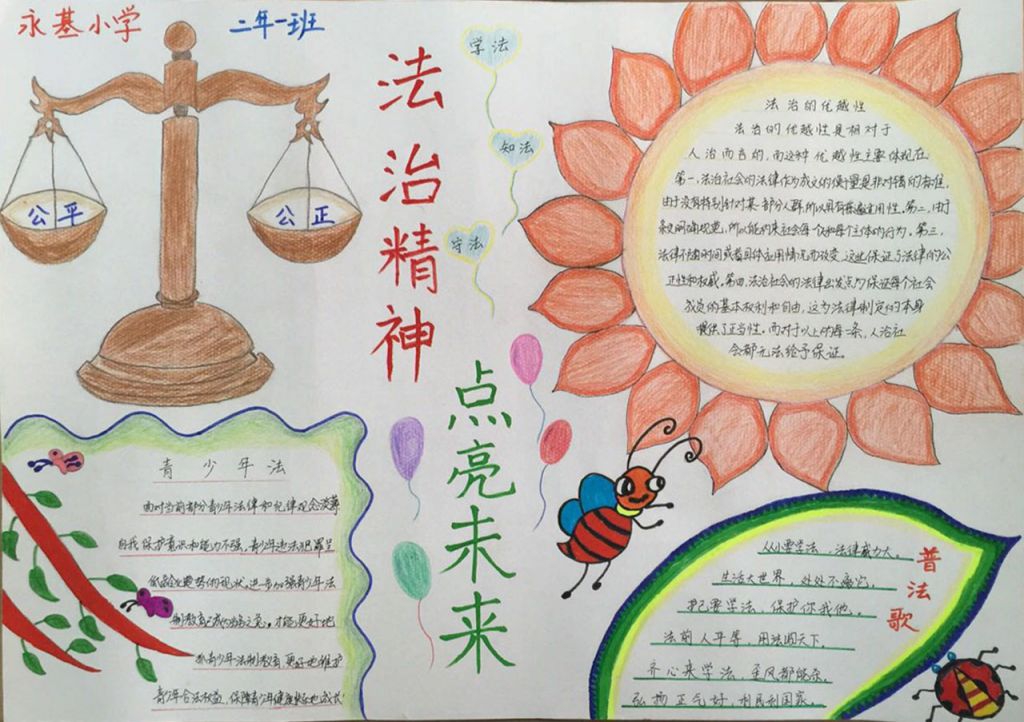 永基小学
二年一班
公平
公正
法治精神
点亮未来
学法
知法
守法
法治的优越性
法治的优越性是相对于
人治而言的,而这种优越性主要体现在
第一,法治社会的法律作为成文的衡量是非对错的标准,
由于没有特别针对某一部分人群,所以具有普遍适用性。第二,由于
明确规范,所以能约束社会每个和每个主体的行为,第三,
法律不随时间或者具体应用情况而改变,这些保证了法律的公
正性和权威。第四,法治社会的法律出发点为保证每个社会
成员的基本权利和自由,这为法律制定的本身
提供了正当性。而对于以上的每一条,人治社
会都无法给予保证。
青少年法
面对当前部分青少年法律和纪律观念淡薄
自我保护意识和能力不强,青少年违法犯罪呈
低龄化趋势的现状,进一步加强青少年法
制教育已成当务之急。才能更好地
抓青少年法制教育,更好地维护
青少年合法权益,保障青少年健康快乐地成长
普法歌
从小要学法,法律威力大。
生活大世界,处处不离它,
护己要学法,保护你我他。
法前人平等,用法圆天下。
齐心来学法,歪风都能杀。
弘扬正气好,利民利国家。